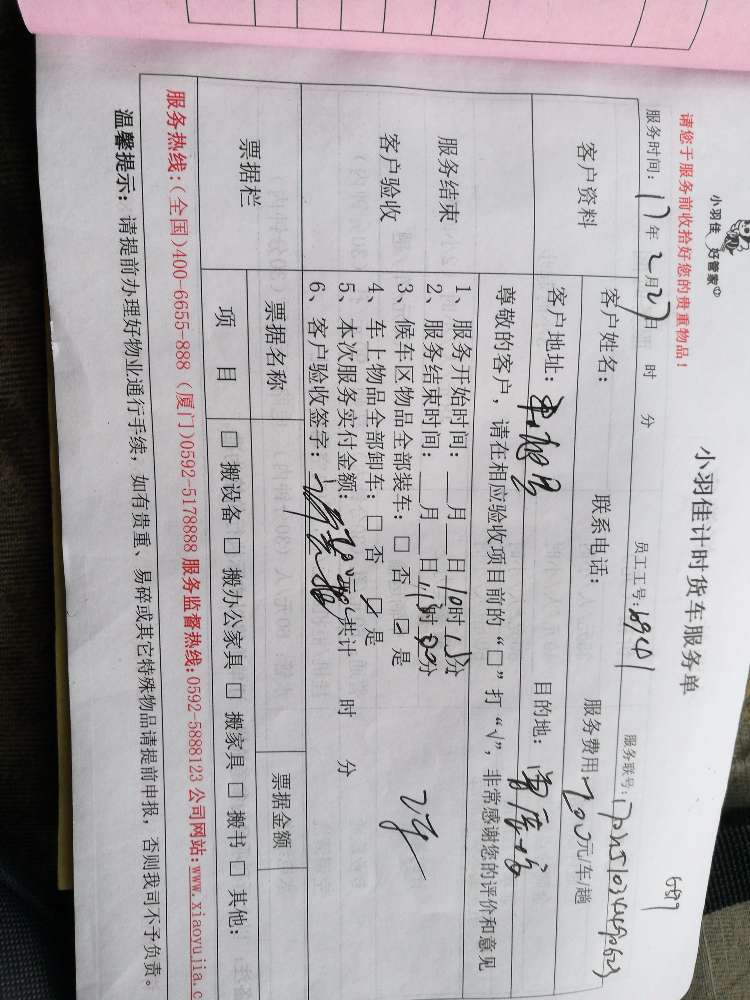 小羽佳 好管家
小羽佳计时货车服务单
6519
请您于服务前收拾好您的贵重物品！
服务时间：17年2月27日 时 分 员工工号： 服务联号：
客户资料
客户姓名： 联系电话： 服务费用200元/车/趟
客户地址： 目的地：
服务结束
客户验收
尊敬的客户，请在相应验收项目前的“□”打“√”，非常感谢您的评价和意见
1、服务开始时间：__月__日10时15分
2、服务结束时间：__月__日11时00分
3、候车区物品全部装车：□ 否 ☑ 是
4、车上物品全部卸车：□ 否 ☑ 是
5、本次服务实付金额： 元(共计 时 分
6、客户验收签字：
票据栏
票据名称 票据金额
项 目 □ 搬设备 □ 搬办公家具 □ 搬家具 □ 搬书 □ 其他：
服务热线：(全国)400-6655-888 (厦门)0592-5178888 服务监督热线：0592-5888123 公司网站：www.xiaoyujia.c
温馨提示：请提前办理好物业通行手续，如有贵重、易碎或其它特殊物品请提前申报，否则我司不予负责。